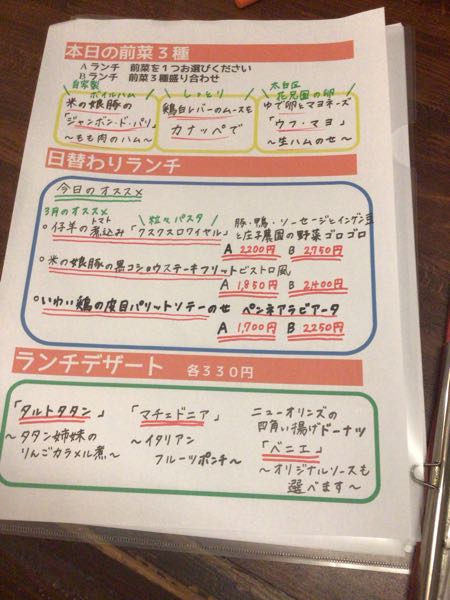 本日の前菜3種
Aランチ 前菜を1つお選びください
Bランチ 前菜3種盛り合わせ
自家製
ボイルハム
米の娘豚の
「ジャンボン・ド・パリ」
〜もも肉のハム〜
しっとり
鶏白レバーのムースを
カナッペで
太白区
花兄園の卵
ゆで卵とマヨネーズ
「ウフ・マヨ」
〜生ハムのせ〜
日替わりランチ
今日のオススメ
3月のオススメ
○仔羊のトマト煮込み「クスクスロワイヤル」
粒々パスタ
豚・鴨・ソーセージとインゲン豆
と庄子農園の野菜ゴロゴロ
A 2200円 B 2,750円
○米の娘豚の黒コショウステーキフリットビストロ風
A 1,850円 B 2,400円
○いわい鶏の皮目パリットソテーのせ ペンネアラビアータ
A 1,700円 B 2250円
ランチデザート 各330円
「タルトタタン」
〜タタン姉妹の
りんごカラメル煮〜
「マチェドニア」
〜イタリアン
フルーツポンチ〜
ニューオリンズの
四角い揚げドーナツ
「ベニエ」
〜オリジナルソースも
選べます〜